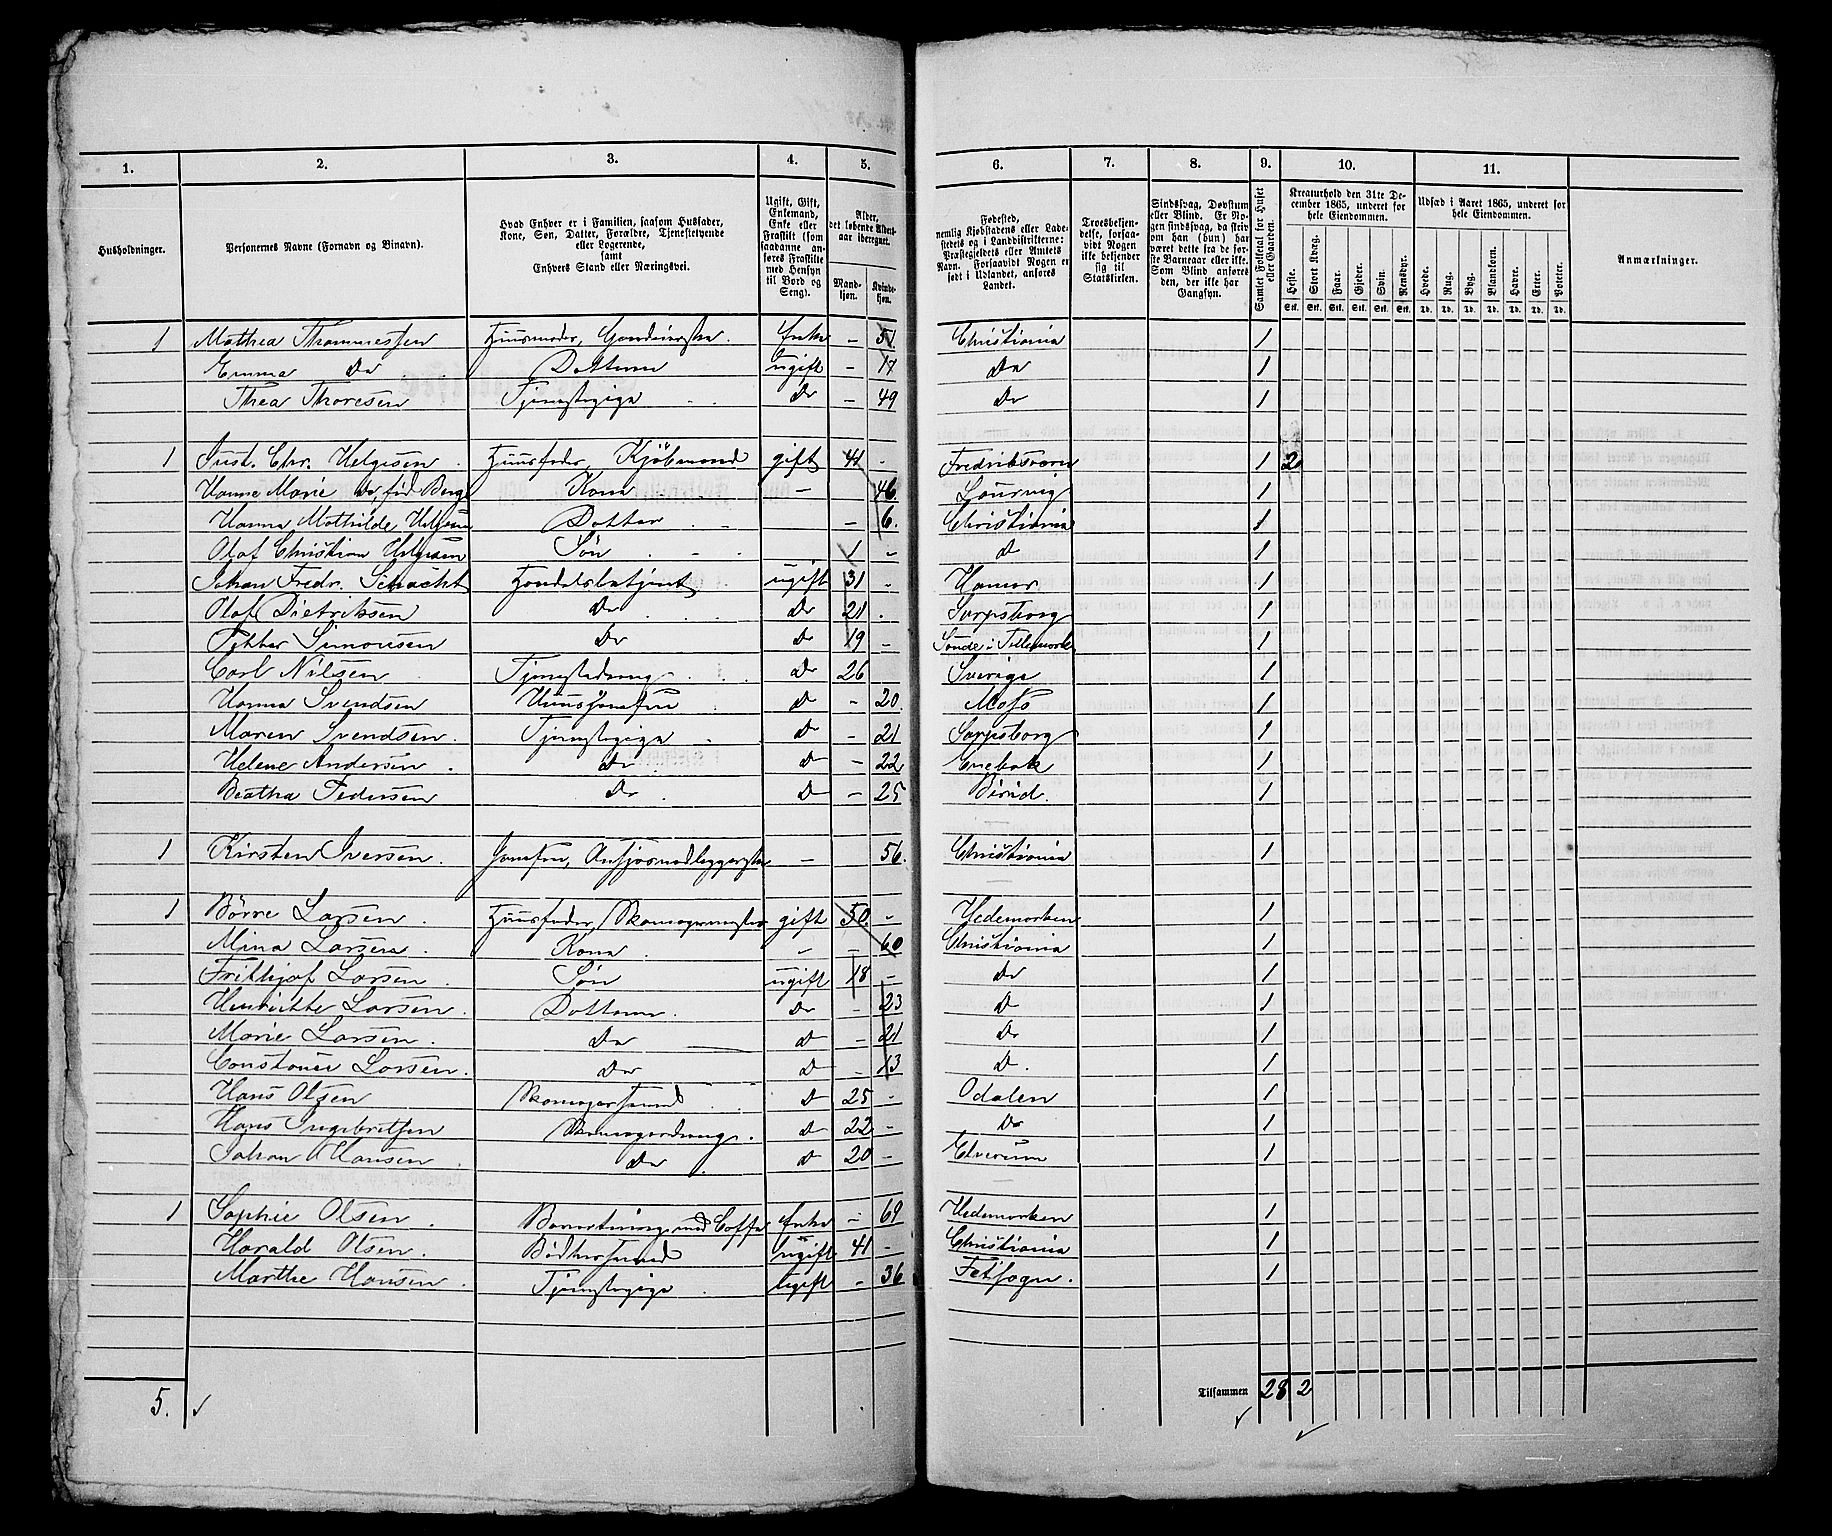 1. 2. 3. 4. 5. 6. 7. 8. 9. 10. 11.
Husholdninger.
Personernes Navne (Fornavn og Binavn).
Hvad Enhver er i Familien, saasom Husfader, Kone, Søn, Datter, Forældre, Tjenestetyende eller Logerende, samt Enhvers Stand eller Næringsvei.
Ugift, Gift, Enkemand, Enke eller Fraskilt (som saadanne anføres Fraskilte med Hensyn til Bord og Seng).
Alder, det løbende Alders-aar iberegnet.
Mandkjøn. Kvindekjøn.
Fødested, nemlig Kjøbstadens eller Ladestedets og i Landdistrikterne: Præstegjeldets eller Amtets Navn. Forsaavidt Nogen er født i Udlandet, anføres Landet.
Troesbekjendelse, forsaavidt Nogen ikke bekjender sig til Statskirken.
Sindssvag, Døvstum eller Blind. Er Nogen sindssvag, da skrives om han (hun) har været dette fra de første Barneaar eller ikke. Som Blind anføres den, der ikke har Gangsyn.
Samlet Folketal for Huset eller Gaarden.
Kreaturhold den 31te December 1865, underet for hele Eiendommen.
Heste. Stort Kvæg. Faar. Gjeder. Svin. Rensdyr.
Udsæd i Aaret 1865, underet for hele Eiendommen.
Hvede. Rug. Byg. Blandkorn. Havre. Erter. Poteter.
Anmærkninger.
Stk. Stk. Stk. Stk. Stk. Stk. Td. Td. Td. Td. Td. Td. Td.
1 Mathea Thommesen Huusmoder, enke - 51 Christiania 1
Emma Do Datter ugift - 17 Do 1
Thea Thoresen Tjenestepige Do - 49 Do 1
1 Just. Chr. Helgesen Huusfader, Kjøbmand gift 41 - Fredriksværn 1 2
Hanne Marie Do fød Berg Kone - 46 Laurvig 1
Hanna Mathilde Helgesen Datter - 6 Christiania 1
Olaf Christian Helgesen Søn 1 - Do 1
Johan Fredr. Schacht Handelsbetjent ugift 31 - Hamar 1
Olaf Dietriksen Do Do 21 Sarpsborg 1
Petter Simonsen Do Do 19 - i Tellemark 1
Carl Nilsen Tjenestedreng Do 26 Sverige 1
Hanna Svendsen Huusjomfru Do - 20 Moss 1
Maren Svendsen Tjenestepige Do - 21 Sarpsborg 1
Helene Andersen Do Do - 22 Enebak 1
Beatha Pedersen Do Do - 25 Birid. 1
1 Kirsten Iversen Jomfru, - 56 Christiania 1
1 Børre Larsen Huusfader, Skomagermester gift 50 - Hedemarken 1
Mina Larsen Kone - - 60 Christiania 1
Frithjof Larsen Søn ugift 18 - Do 1
Henriette Larsen Datter Do - 23 Do 1
Marie Larsen Do Do - 21 Do 1
Constance Larsen Do Do - 13 Do 1
Hans Olsen Skomagersvend Do 25 - Odalen 1
Hans Ingebretsen Skomagerdreng Do 22 - Do 1
Johan Hansen Do Do 20 - Elverum 1
1 Sophie Olsen Bevertning med Caffe enke - 69 Hedemarken 1
Harald Olsen Bødkersvend ugift 41 - Christiania 1
Marthe Hansen Tjenestepige ugift - 36 Fet sogn. 1
5. Tilsammen 28 2